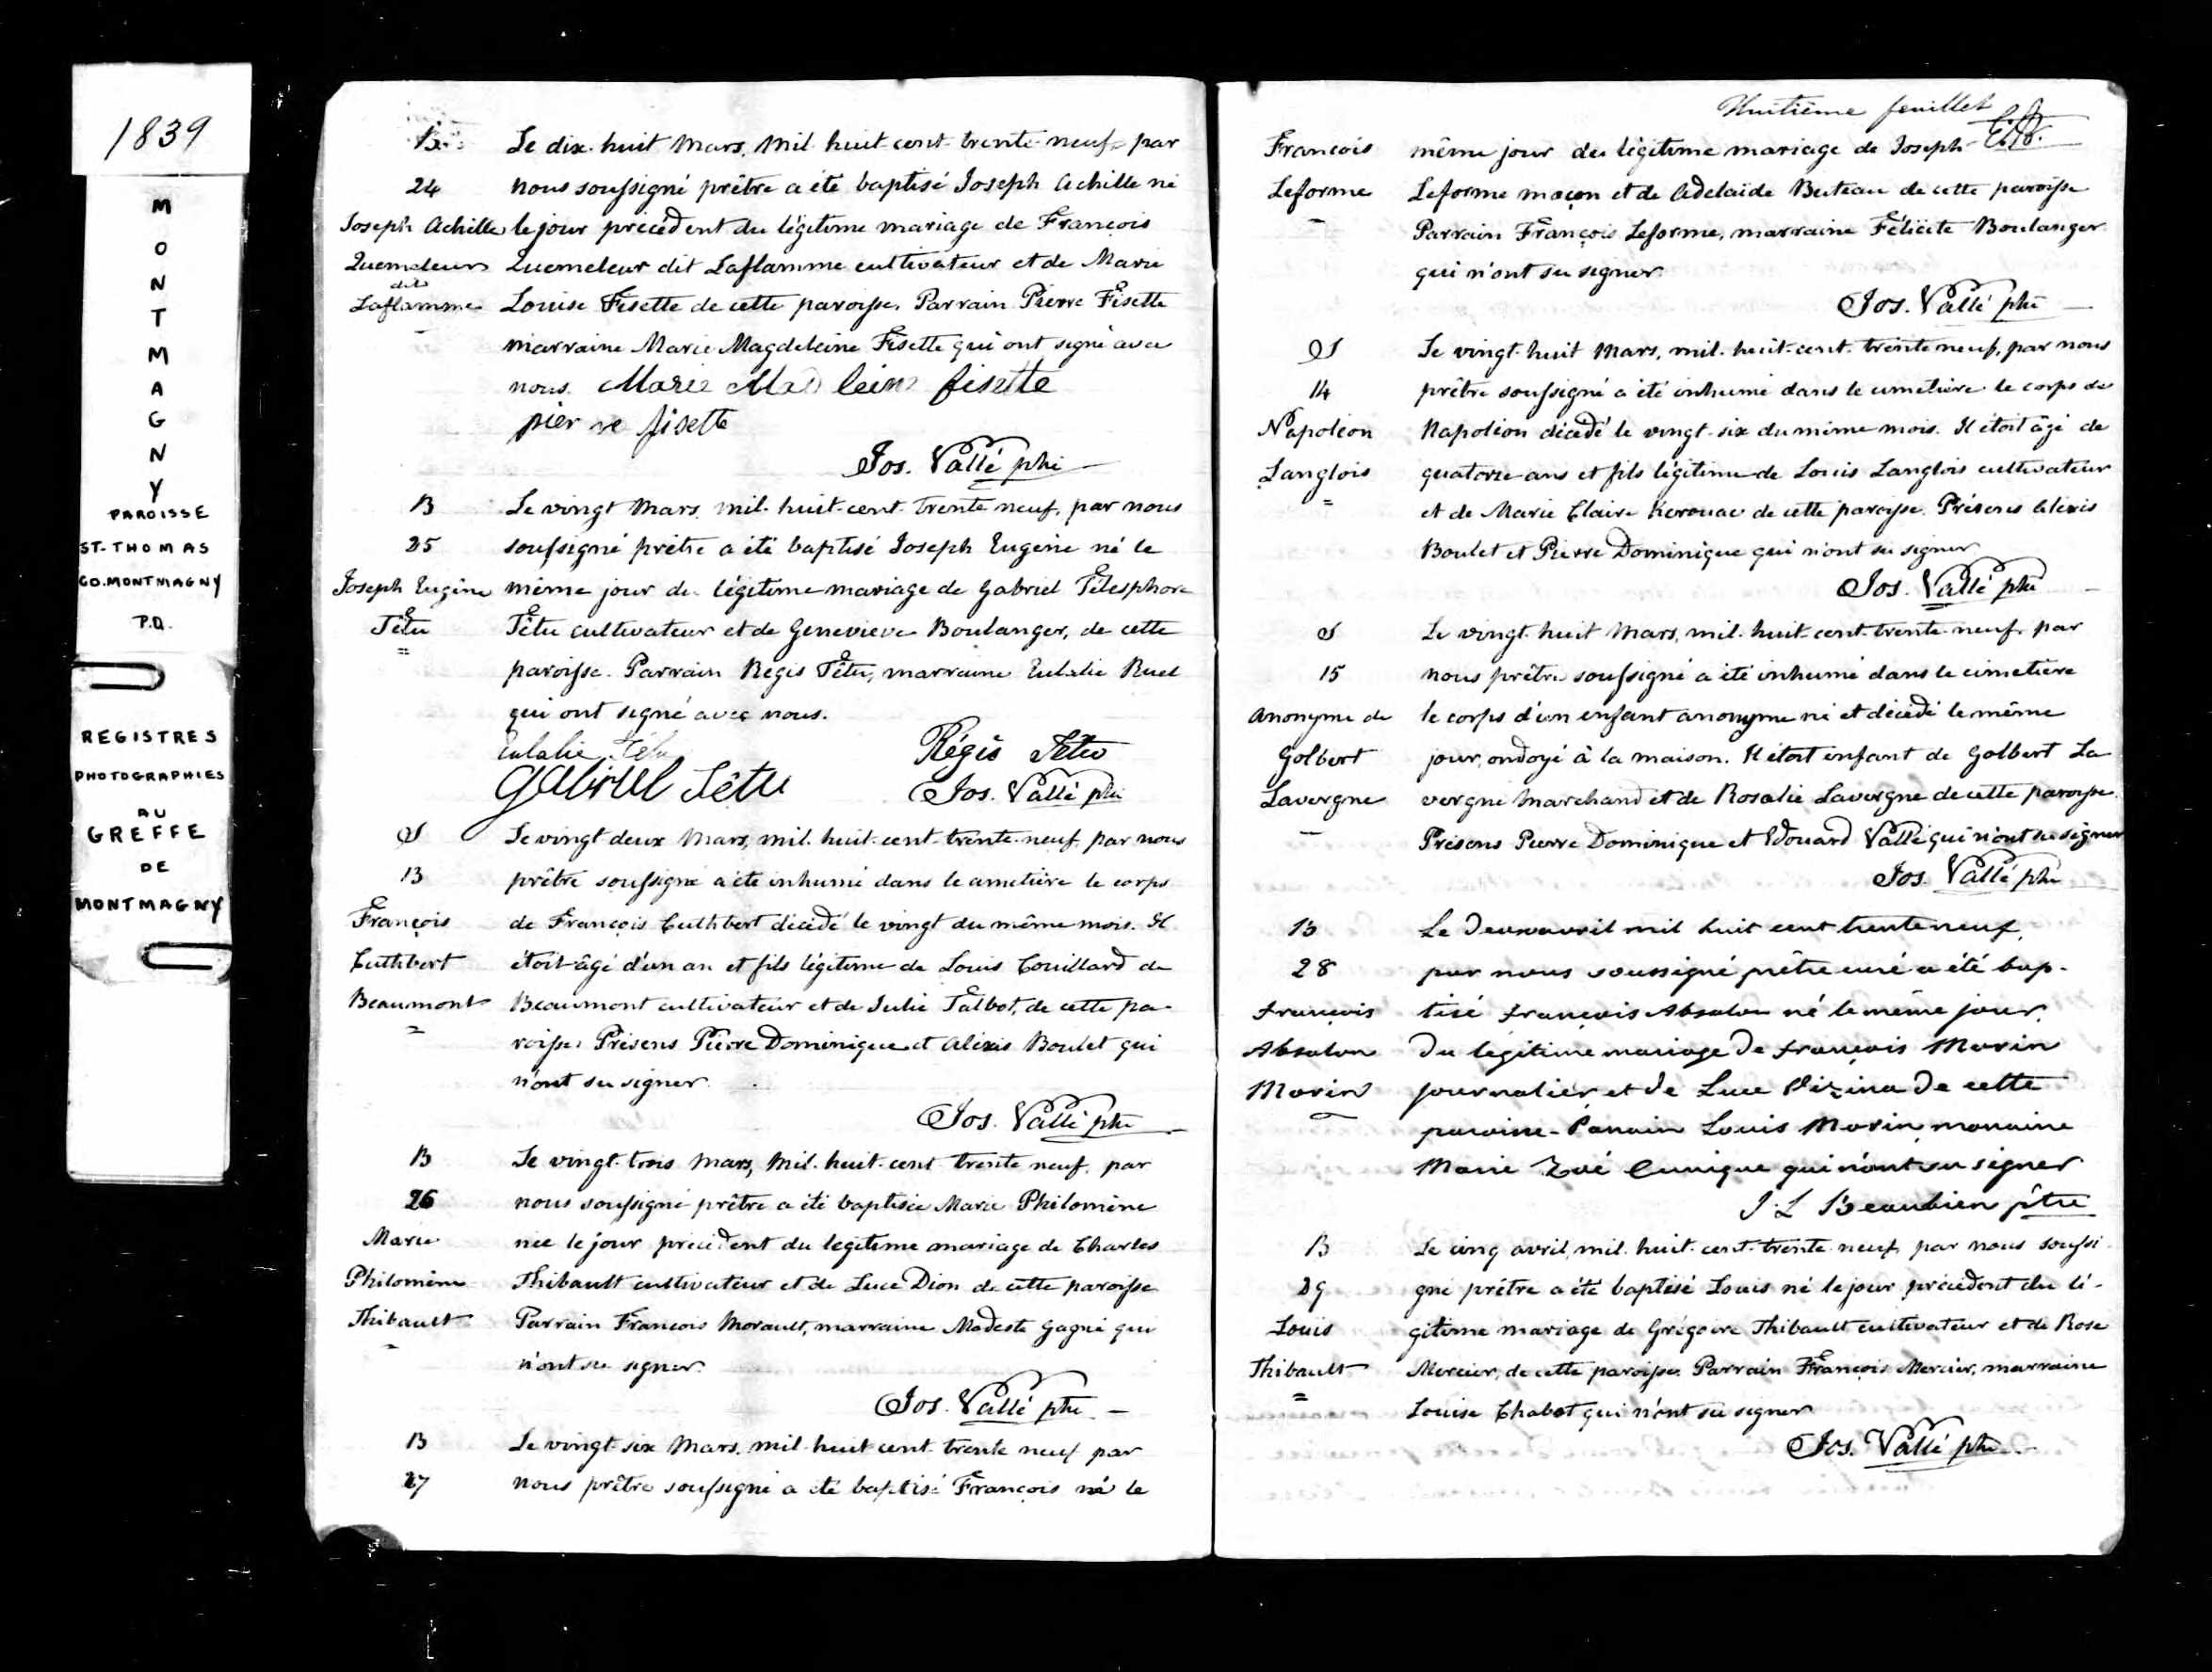 1839
MONTMAGNY
PAROISSE
ST-THOMAS
CO. MONTMAGNY
P.Q.
REGISTRES
PHOTOGRAPHIES
AU
GREFFE
DE
MONTMAGNY
B. Le dix-huit Mars, mil huit-cent-trente-neuf, par
24 nous soussigné prêtre a été baptisé Joseph Achille né
Joseph Achille le jour précédent du légitime mariage de François
Quemeleur Quemeleur dit Laflamme cultivateur et de Marie
dit
Laflamme Louise Fisette de cette paroisse. Parrain Pierre Fisette
marraine Marie Magdeleine Fisette qui ont signé avec
nous. Marie Mad leine fisette
pier re fisette
Jos. Vallé ptre
B Le vingt Mars, mil-huit-cent-trente neuf, par nous
25 soussigné prêtre a été baptisé Joseph Eugène né le
Joseph Eugène même jour du légitime mariage de Gabriel Télesphore
Têtu Têtu cultivateur et de Genevieve Boulanger, de cette
paroisse. Parrain Régis Têtu, marraine Eulalie Ruel
qui ont signé avec nous.
Eulalie Têtu Régis Têtu
Gabriel Têtu Jos. Vallé ptre
S Le vingt-deux Mars, mil-huit-cent-trente-neuf, par nous
13 prêtre soussigné a été inhumé dans le cimetière le corps
François de François Cuthbert décédé le vingt du même mois. Il
Cuthbert étoit âgé d'un an et fils légitime de Louis Couillard de
Beaumont Beaumont cultivateur et de Julie Talbot, de cette pa-
roisse. Présens Pierre Dominique et Alexis Boulet qui
n'ont su signer.
Jos. Vallé ptre
B Le vingt-trois Mars, mil-huit-cent-trente neuf, par
26 nous soussigné prêtre a été baptisée Marie Philomène
Marie née le jour précédent du legitime mariage de Charles
Philomène Thibault cultivateur et de Luce Dion de cette paroisse
Thibault Parrain François Morault, marraine Modeste Gagné qui
n'ont su signer.
Jos. Vallé ptre
B Le vingt-six Mars, mil-huit cent-trente neuf par
27 nous prêtre soussigné a été baptisé François né le
Huitième feuillet
François même jour du légitime mariage de Joseph
Leforme Leforme maçon et de Adelaide Buteau de cette paroisse
Parrain François Leforme, marraine Félicité Boulanger
qui n'ont su signer.
Jos. Vallé ptre
S Le vingt-huit Mars, mil-huit-cent-trente neuf, par nous
14 prêtre soussigné a été inhumé dans le cimetière le corps de
Napoléon Napoléon décédé le vingt-six du même mois. Il étoit âgé de
Langlois quatorze ans et fils légitime de Louis Langlois cultivateur
et de Marie Claire Kerouac de cette paroisse. Présens Alexis
Boulet et Pierre Dominique qui n'ont su signer
Jos. Vallé ptre
S Le vingt-huit Mars, mil-huit-cent-trente-neuf, par
15 nous prêtre soussigné a été inhumé dans le cimetière
Anonyme de le corps d'un enfant anonyme né et décédé le même
Golbert jour, ondoyé à la maison. Il étoit enfant de Golbert La
Lavergne vergne Marchand et de Rosalie Lavergne de cette paroisse.
Présens Pierre Dominique et Edouard Vallé qui n'ont su signer
Jos. Vallé ptre
B Le deux avril mil huit cent trente neuf,
28 par nous soussigné prêtre curé a été bap-
François tisé François Absalon né le même jour,
Absalon du légitime mariage de François Morin
Morin journalier, et de Luce Vizina de cette
paroisse. Parrain Louis Morin, marraine
Marie Zoé qui n'ont su signer
J. L. Beaubien ptre
B Le cinq avril, mil-huit-cent-trente neuf, par nous soussi
29 gné prêtre a été baptisé Louis né le jour précédent du lé-
Louis gitime mariage de Grégoire Thibault cultivateur et de Rose
Thibault Mercier, de cette paroisse. Parrain François Mercier, marraine
Louise Chabot qui n'ont su signer
Jos. Vallé ptre